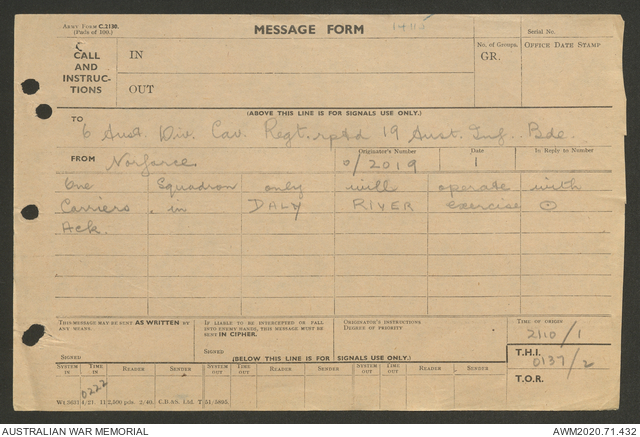 ARMY FORM C.2130.
(Pads of 100.)
MESSAGE FORM
Serial No.
CALL AND INSTRUC-TIONS
IN
OUT
No. of Groups.
GR.
OFFICE DATE STAMP
(ABOVE THIS LINE IS FOR SIGNALS USE ONLY.)
TO
6 Aust. Div. Cav. Regt. rptd 19 Aust. Inf. Bde.
FROM Norforce
Originator's Number
O/2019
Date
1
In Reply to Number
One Squadron only will operate with
Carriers in DALY RIVER exercise ⊙
Ack.
THIS MESSAGE MAY BE SENT AS WRITTEN BY ANY MEANS.
SIGNED
IF LIABLE TO BE INTERCEPTED OR FALL INTO ENEMY HANDS, THIS MESSAGE MUST BE SENT IN CIPHER.
SIGNED
ORIGINATOR'S INSTRUCTIONS
DEGREE OF PRIORITY
TIME OF ORIGIN
2110/1
(BELOW THIS LINE IS FOR SIGNALS USE ONLY.)
T.H.I.
0137/2
T.O.R.
SYSTEM IN TIME IN READER SENDER SYSTEM OUT TIME OUT READER SENDER SYSTEM OUT TIME OUT READER SENDER
0222
AUSTRALIAN WAR MEMORIAL
AWM2020.71.432